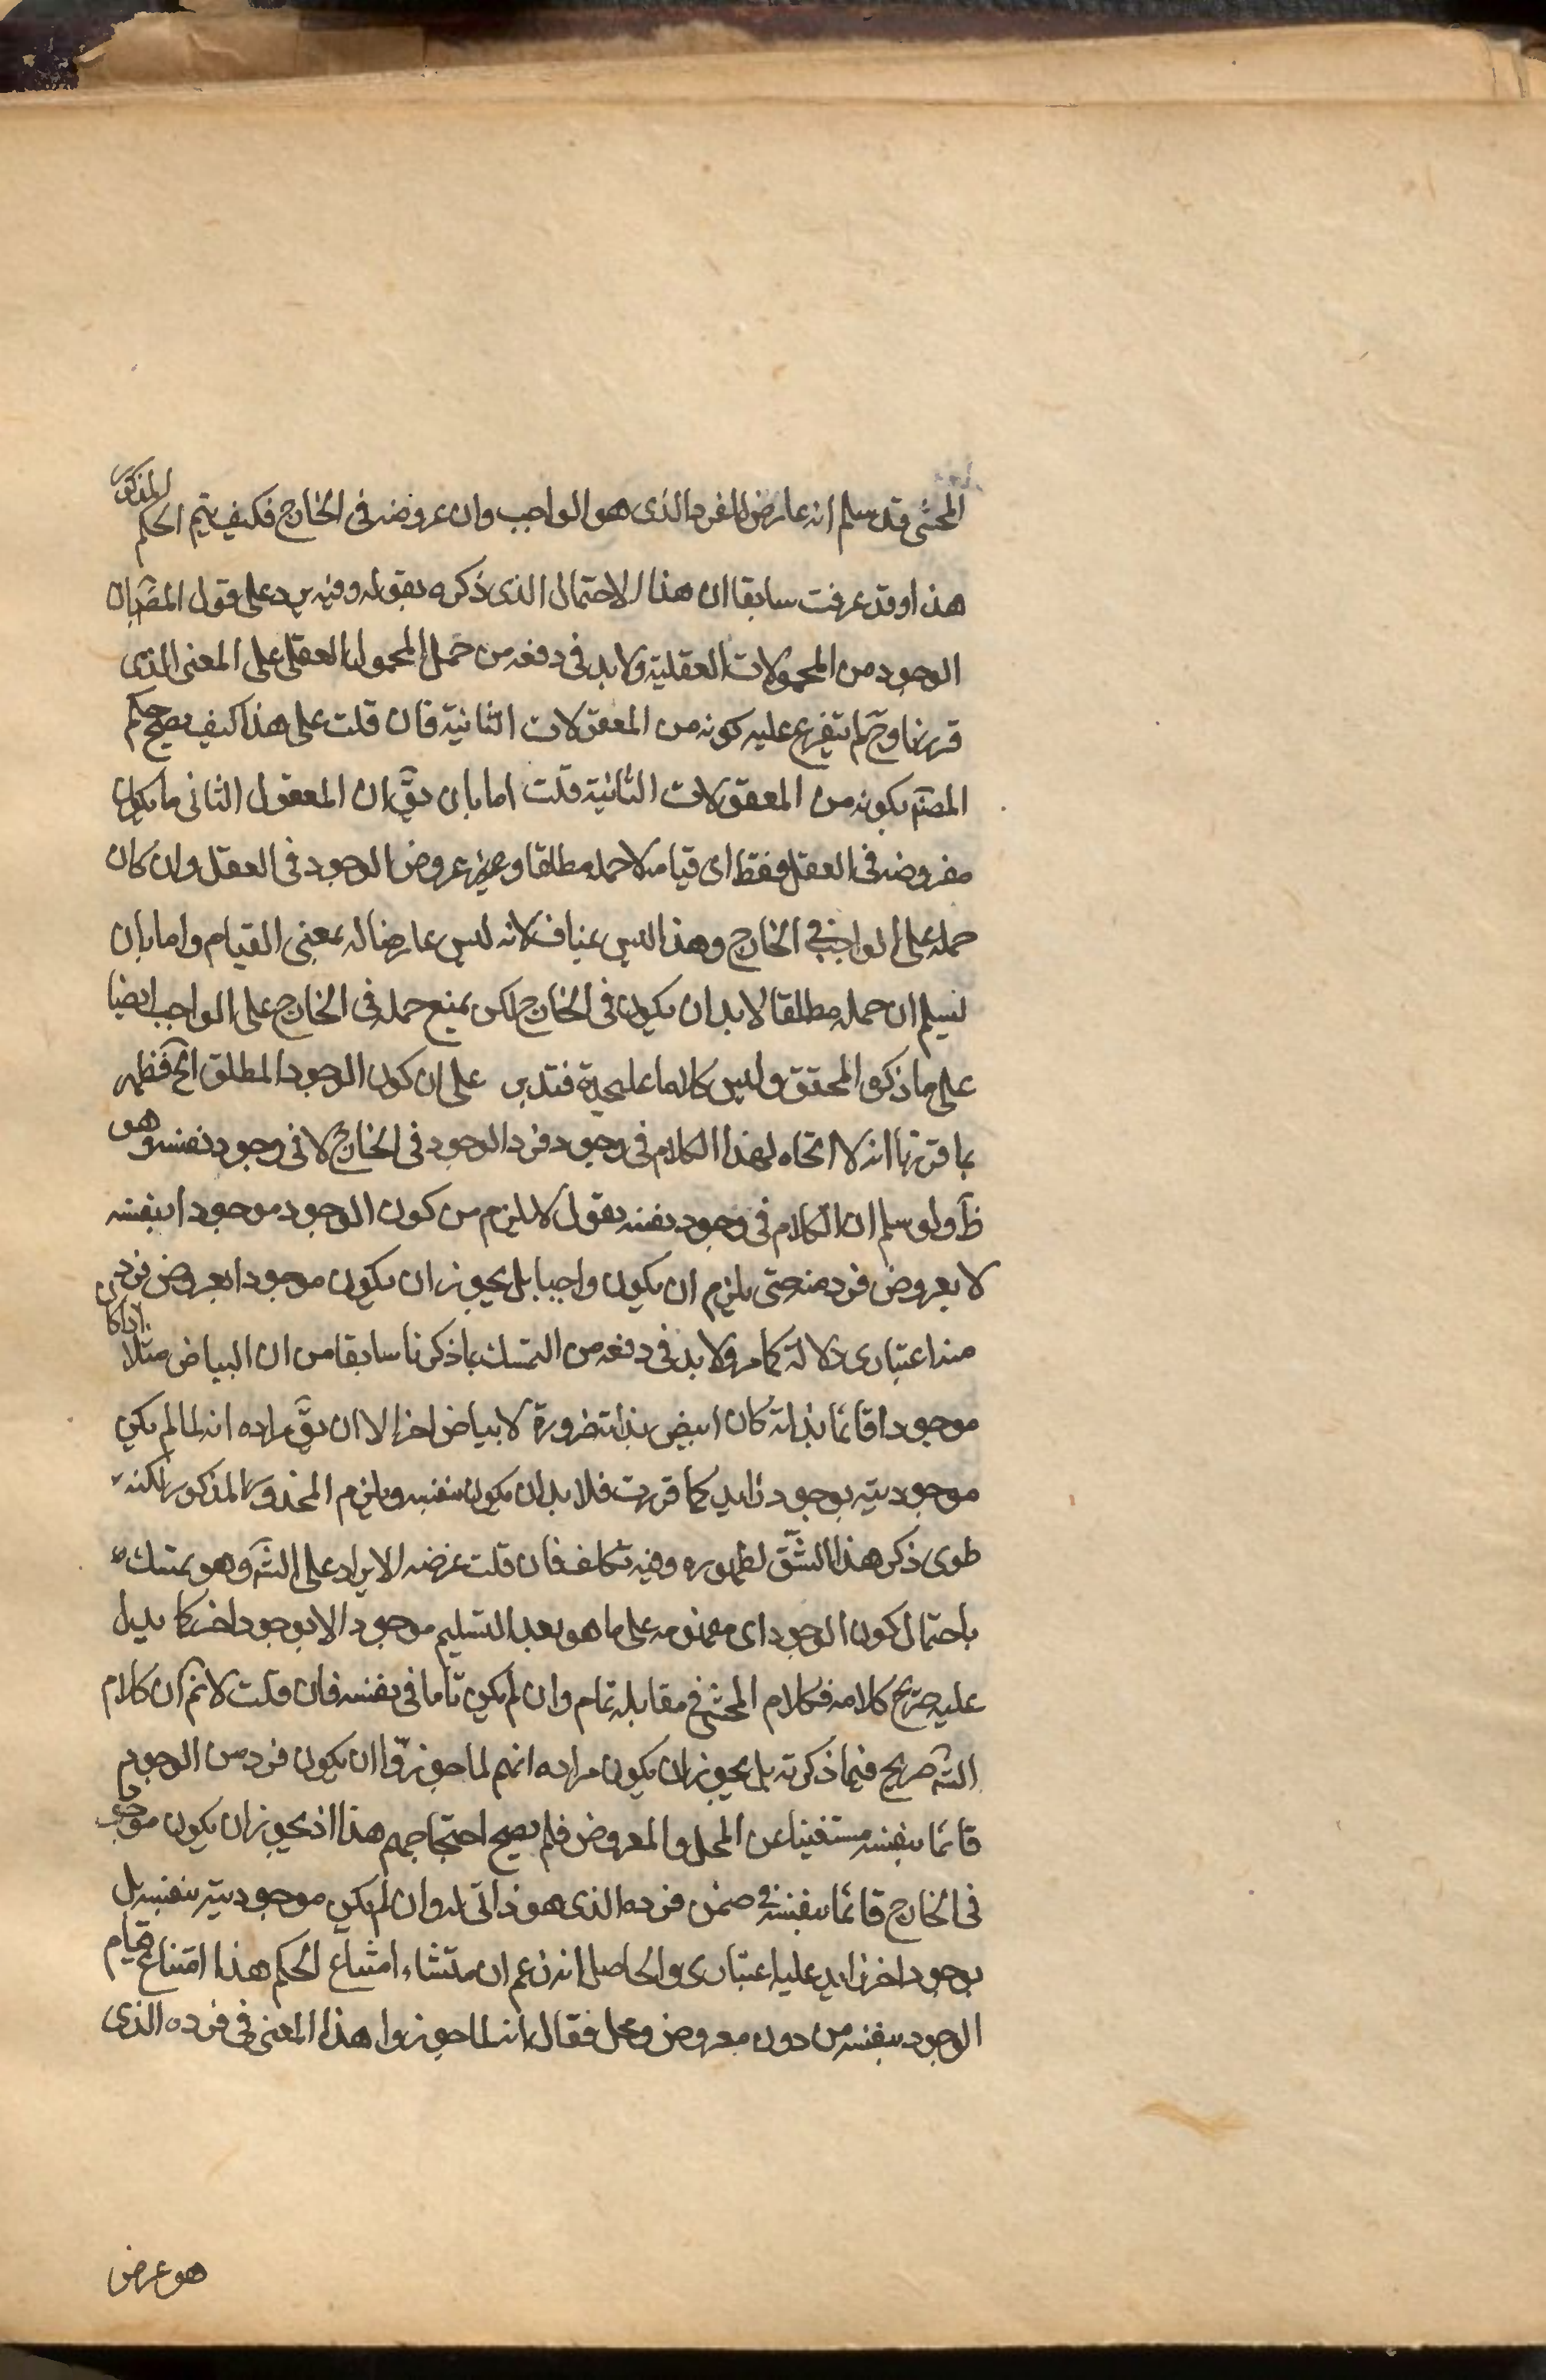 المحشى قد سلم انه عارض للفرد الذى هو الواجب وان عروضه فى الخارج فكيف يتم الحكم المذكور
هذا وقد عرفت سابقا ان هذا الاحتمال الذى ذكره بقوله وفيه يرد على قول المصَ ان
الوجود من المحمولات العقلية ولا بد فى دفعه من حمل المحمول العقلى على المعنى الذى
قررنا وحَ لم يتفرع عليه كونه من المعقولات الثانية فان قلت على هذا كيف يصح حكم
المصنَ بكونه من المعقولات الثانية قلت اما بان يقَ ان المعقول الثانى ما يكون
معروضه فى العقل فقط اى قيامه لا حمله مطلقا و عروض الوجود فى العقل وان كان
حمله على الواجب فى الخارج وهذا ليس بمناف لانه ليس عارضا له بمعنى القيام واما بان
نسلم ان حمله مطلقا لا بد ان يكون فى الخارج لكن يمنع حمله فى الخارج على الواجب ايضا
على ما ذكره المحقق وليس كلاما عليحدة فتدبر على ان كون الوجود المطلق الخَ فظهر
بما قررنا انه لا اتجاه لهذا الكلام فى وجود فرد الوجود فى الخارج لا فى وجود نفسه وهو
ظَ ولو سلم ان الكلام فى وجود نفسه نقول لا يلزم من كون الوجود موجودا بنفسه
لا بعروض فرد منه حتى يلزم ان يكون واجبا بل يجوز ان يكون موجودا بعروض فرد
منه اعتبارى له كما مر ولا بد فى دفعه من التمسك بما ذكرنا سابقا من ان البياض مثلا اذا كان
موجودا قائما بذاته كان ابيض بذاته ضرورة لا ببياض اخر الا ان يقَ مراده انه لما لم يكن
موجوديته بوجود زايد كما قررت فلا بد ان يكون بنفسه ويلزم المحذور المذكور لكنه
طوى ذكر هذا الشق لظهوره وفيه تكلف فان قلت غرضه الايراد على الشَ وهو يمسك
باحتمال كون الوجود اى مفهومه على ما هو بعد التسليم موجودا لا بوجود اخر كما يدل
عليه صريح كلامه فكلام المحشى فى مقابله تمام وان لم يكن تاما فى نفسه فان قلت لا نمَ ان كلام
الشَ صريح فيما ذكرته بل يجوز ان يكون مراده انهم لما جوزوا ان يكون فرد من الوجود
قائما بنفسه مستغنيا عن المحل والمعروض فلم يصح احتجاجهم هذا اذ يجوز ان يكون موجودا
فى الخارج قائما بنفسه فى ضمن فرده الذى هو ذاتى له وان لم يكن موجوديته بنفسه بل
بوجود اخر زايد عليه اعتبارى والحاصل انه زعم ان منشاء امتناع الحكم هذا امتناع قيام
الوجود بنفسه من دون معروض ومحل فقال انه لما جوزوا هذا المعنى فى فرده الذى
هو عرض